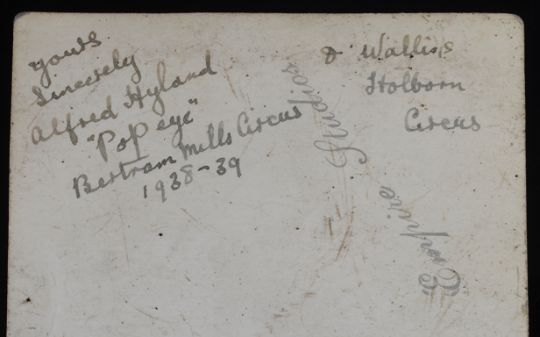 Yours
Sincerely
Alfred Hyland
"Pop eye"
Bertram Mills Circus
1938-39
& Wallis's
Holborn
Circus
Empire Studios